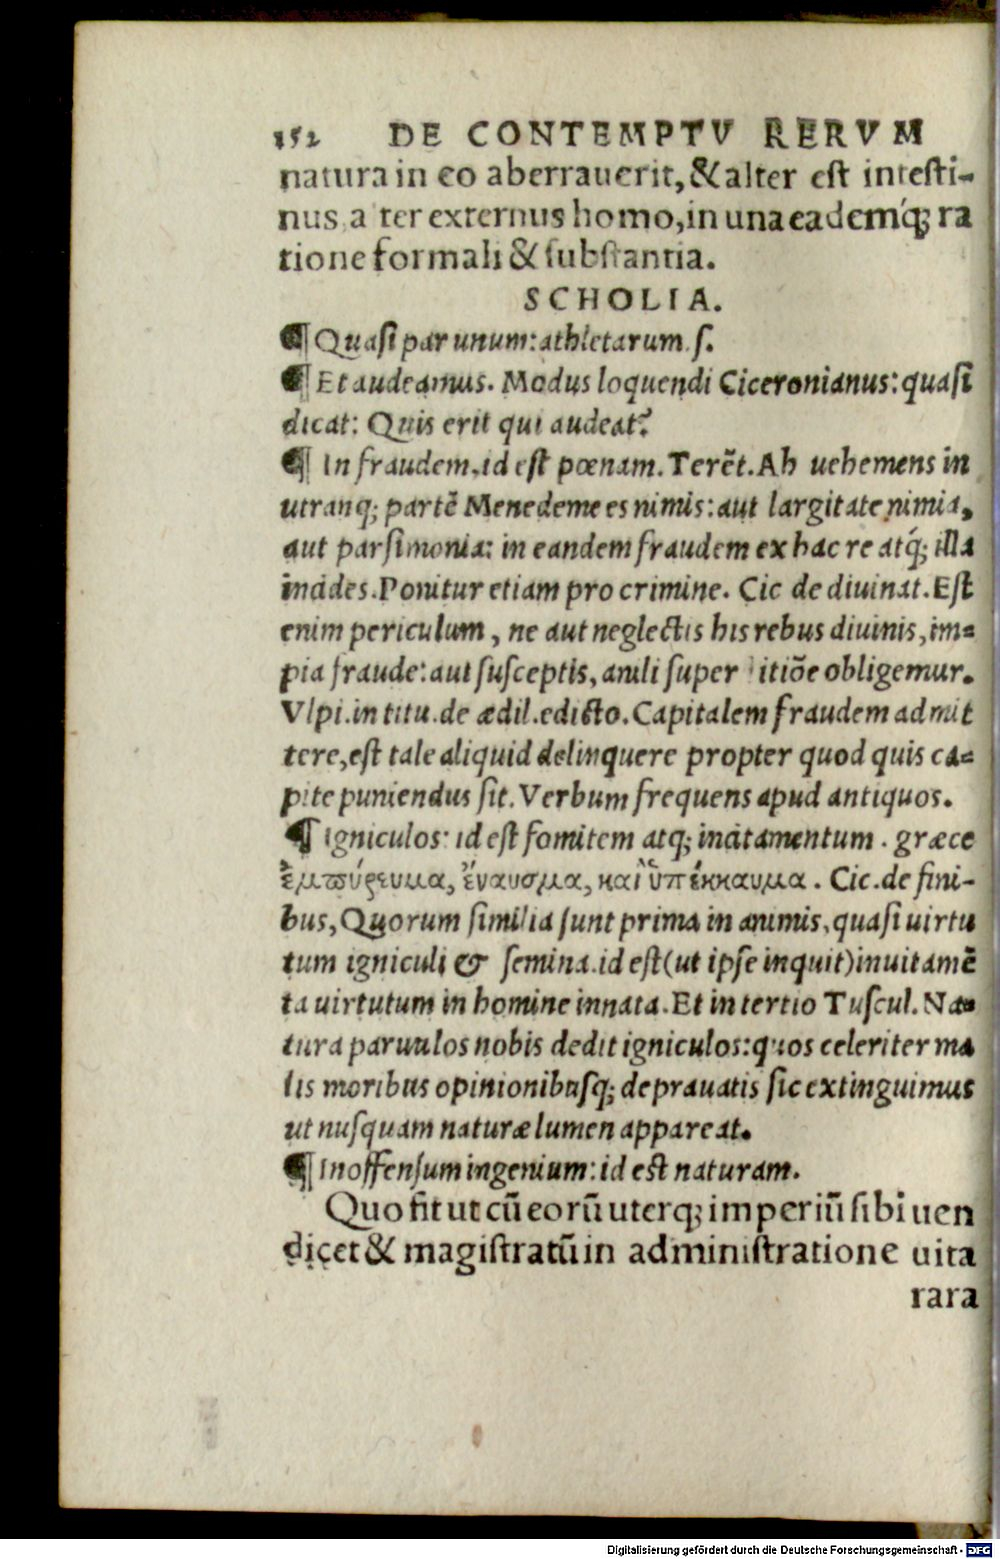 152 DE CONTEMPTV RERVM
natura in eo aberrauerit, & alter est intesti-
nus, a ter externus homo, in una eademq́; ra
tione formali & substantia.
SCHOLIA.
¶ Quasi par unum: athletarum s.
¶ Et audeamus. Modus loquendi Ciceronianus: quasi
dicat: Quis erit qui audeat?
¶ In fraudem, id est pœnam. Terẽt. Ah uehemens in
utranq; partẽ Menedeme es nimis: aut largitate nimia,
aut parsimonia: in eandem fraudem ex hac re atq́; illa
incides. Ponitur etiam pro crimine. Cic de diuinat. Est
enim periculum, ne aut neglectis his rebus diuinis, im-
pia fraude: aut susceptis, anili super itiõe obligemur.
Vlpi. in titu. de ædil. edicto. Capitalem fraudem admit
tere, est tale aliquid delinquere propter quod quis ca-
pite puniendus sit. Verbum frequens apud antiquos.
¶ Igniculos: id est fomitem atq; incitamentum. græce
ἐμπύρευμα, ἔναυσμα, καὶ ὑπέκκαυμα. Cic. de fini-
bus, Quorum similia sunt prima in animis, quasi uirtu
tum igniculi & semina. id est (ut ipse inquit) inuitamẽ
ta uirtutum in homine innata. Et in tertio Tuscul. Na-
tura paruulos nobis dedit igniculos: quos celeriter ma
lis moribus opinionibusq; deprauatis sic extinguimus
ut nusquam naturæ lumen appareat.
¶ Inoffensum ingenium: id est naturam.
Quo fit ut cũ eorũ uterq; imperiũ sibi uen
dicet & magistratũ in administratione uita
rara
Digitalisierung gefördert durch die Deutsche Forschungsgemeinschaft - DFG